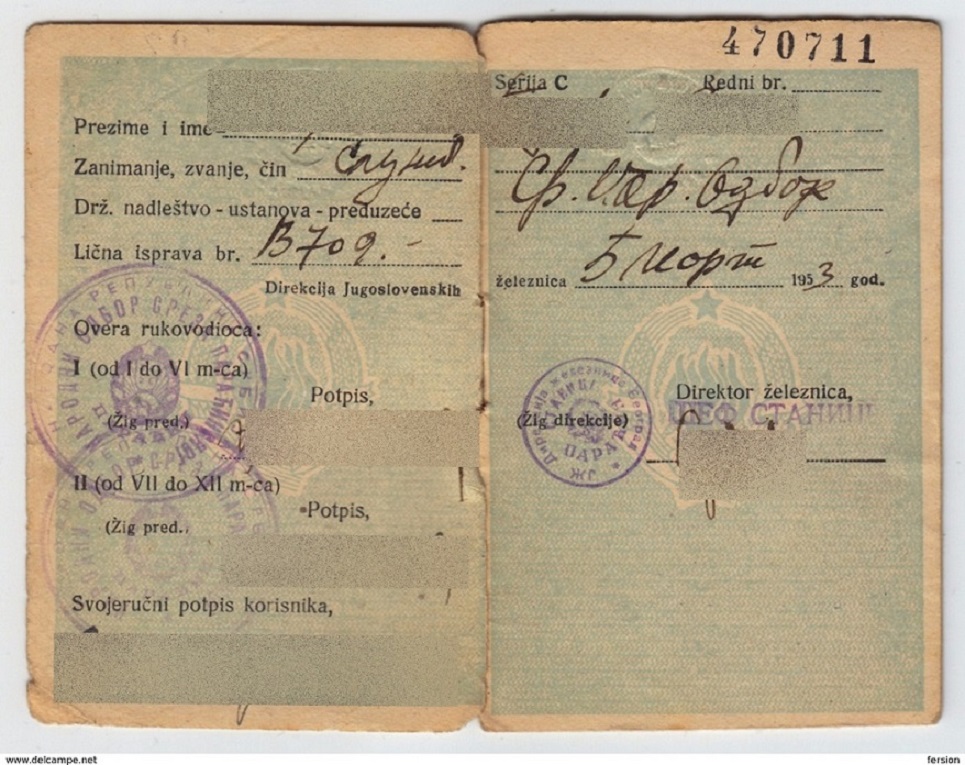 Prezime i ime
Zanimanje, zvanje, čin служб.
Drž. nadleštvo - ustanova - preduzeće
Lična isprava br. В709.-
Direkcija Jugoslovenskih
Overa rukovodioca:
I (od I do VI m-ca)
Potpis,
(Žig pred.)
II (od VII do XII m-ca)
Potpis,
(Žig pred.
Svojeručni potpis korisnika,
470711
Serija C Redni br.
Ср. Одбор
železnica 5 март 1953 god.
Direktor železnica,
ШЕФ СТАНИЦЕ
(Žig direkcije)
НАРОДНИ ОДБОР СРЕЗА
www.delcampe.net
fersion